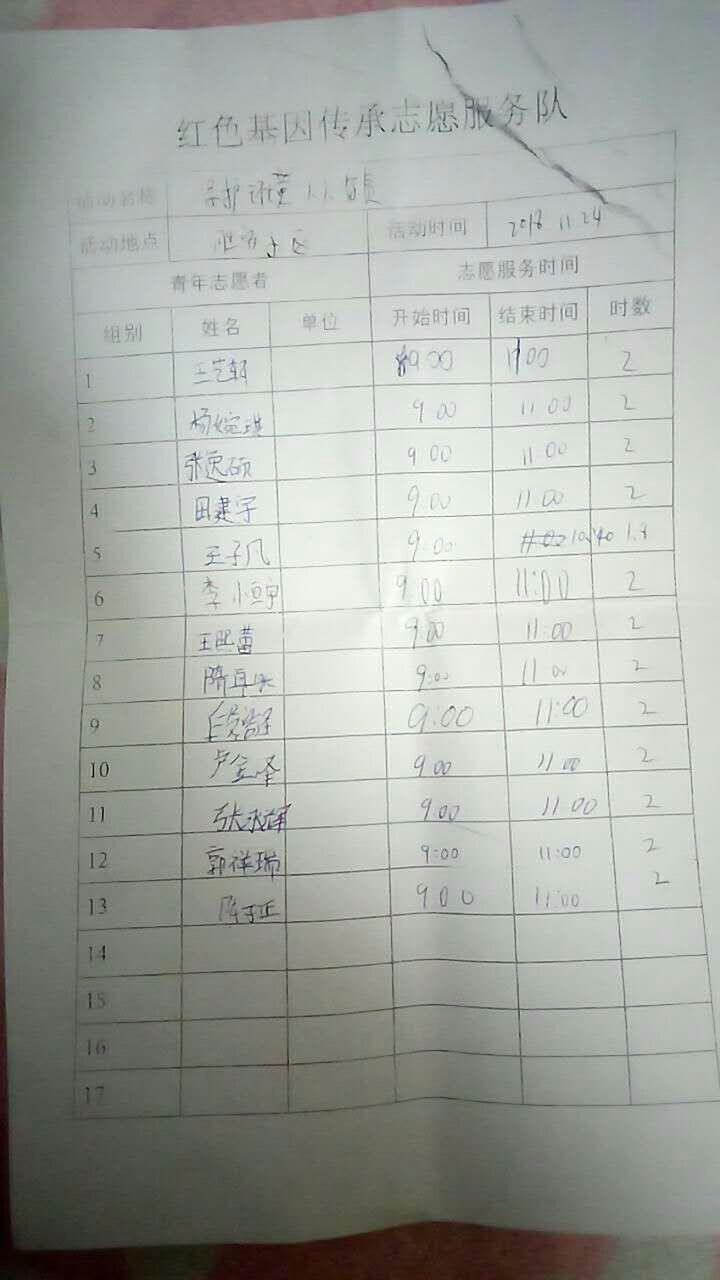 红色基因传承志愿服务队
活动名称 人人有责
活动地点 小区 活动时间 2018 11 24
青年志愿者 志愿服务时间
组别 姓名 单位 开始时间 结束时间 时数
1 王艺轩 9 00 11 00 2
2 杨婉琪 9 00 11 00 2
3 张逸硕 9 00 11 00 2
4 田建宇 9 00 11 00 2
5 王子凡 9:00 10:40 1.8
6 李恒宇 9 00 11:00 2
7 王熙蕾 9 00 11:00 2
8 9:00 11 00 2
9 9:00 11:00 2
10 卢金泽 9 00 11 00 2
11 张永辉 9 00 11 00 2
12 郭祥瑞 9:00 11:00 2
13 陈子正 9 00 11:00 2
14
15
16
17